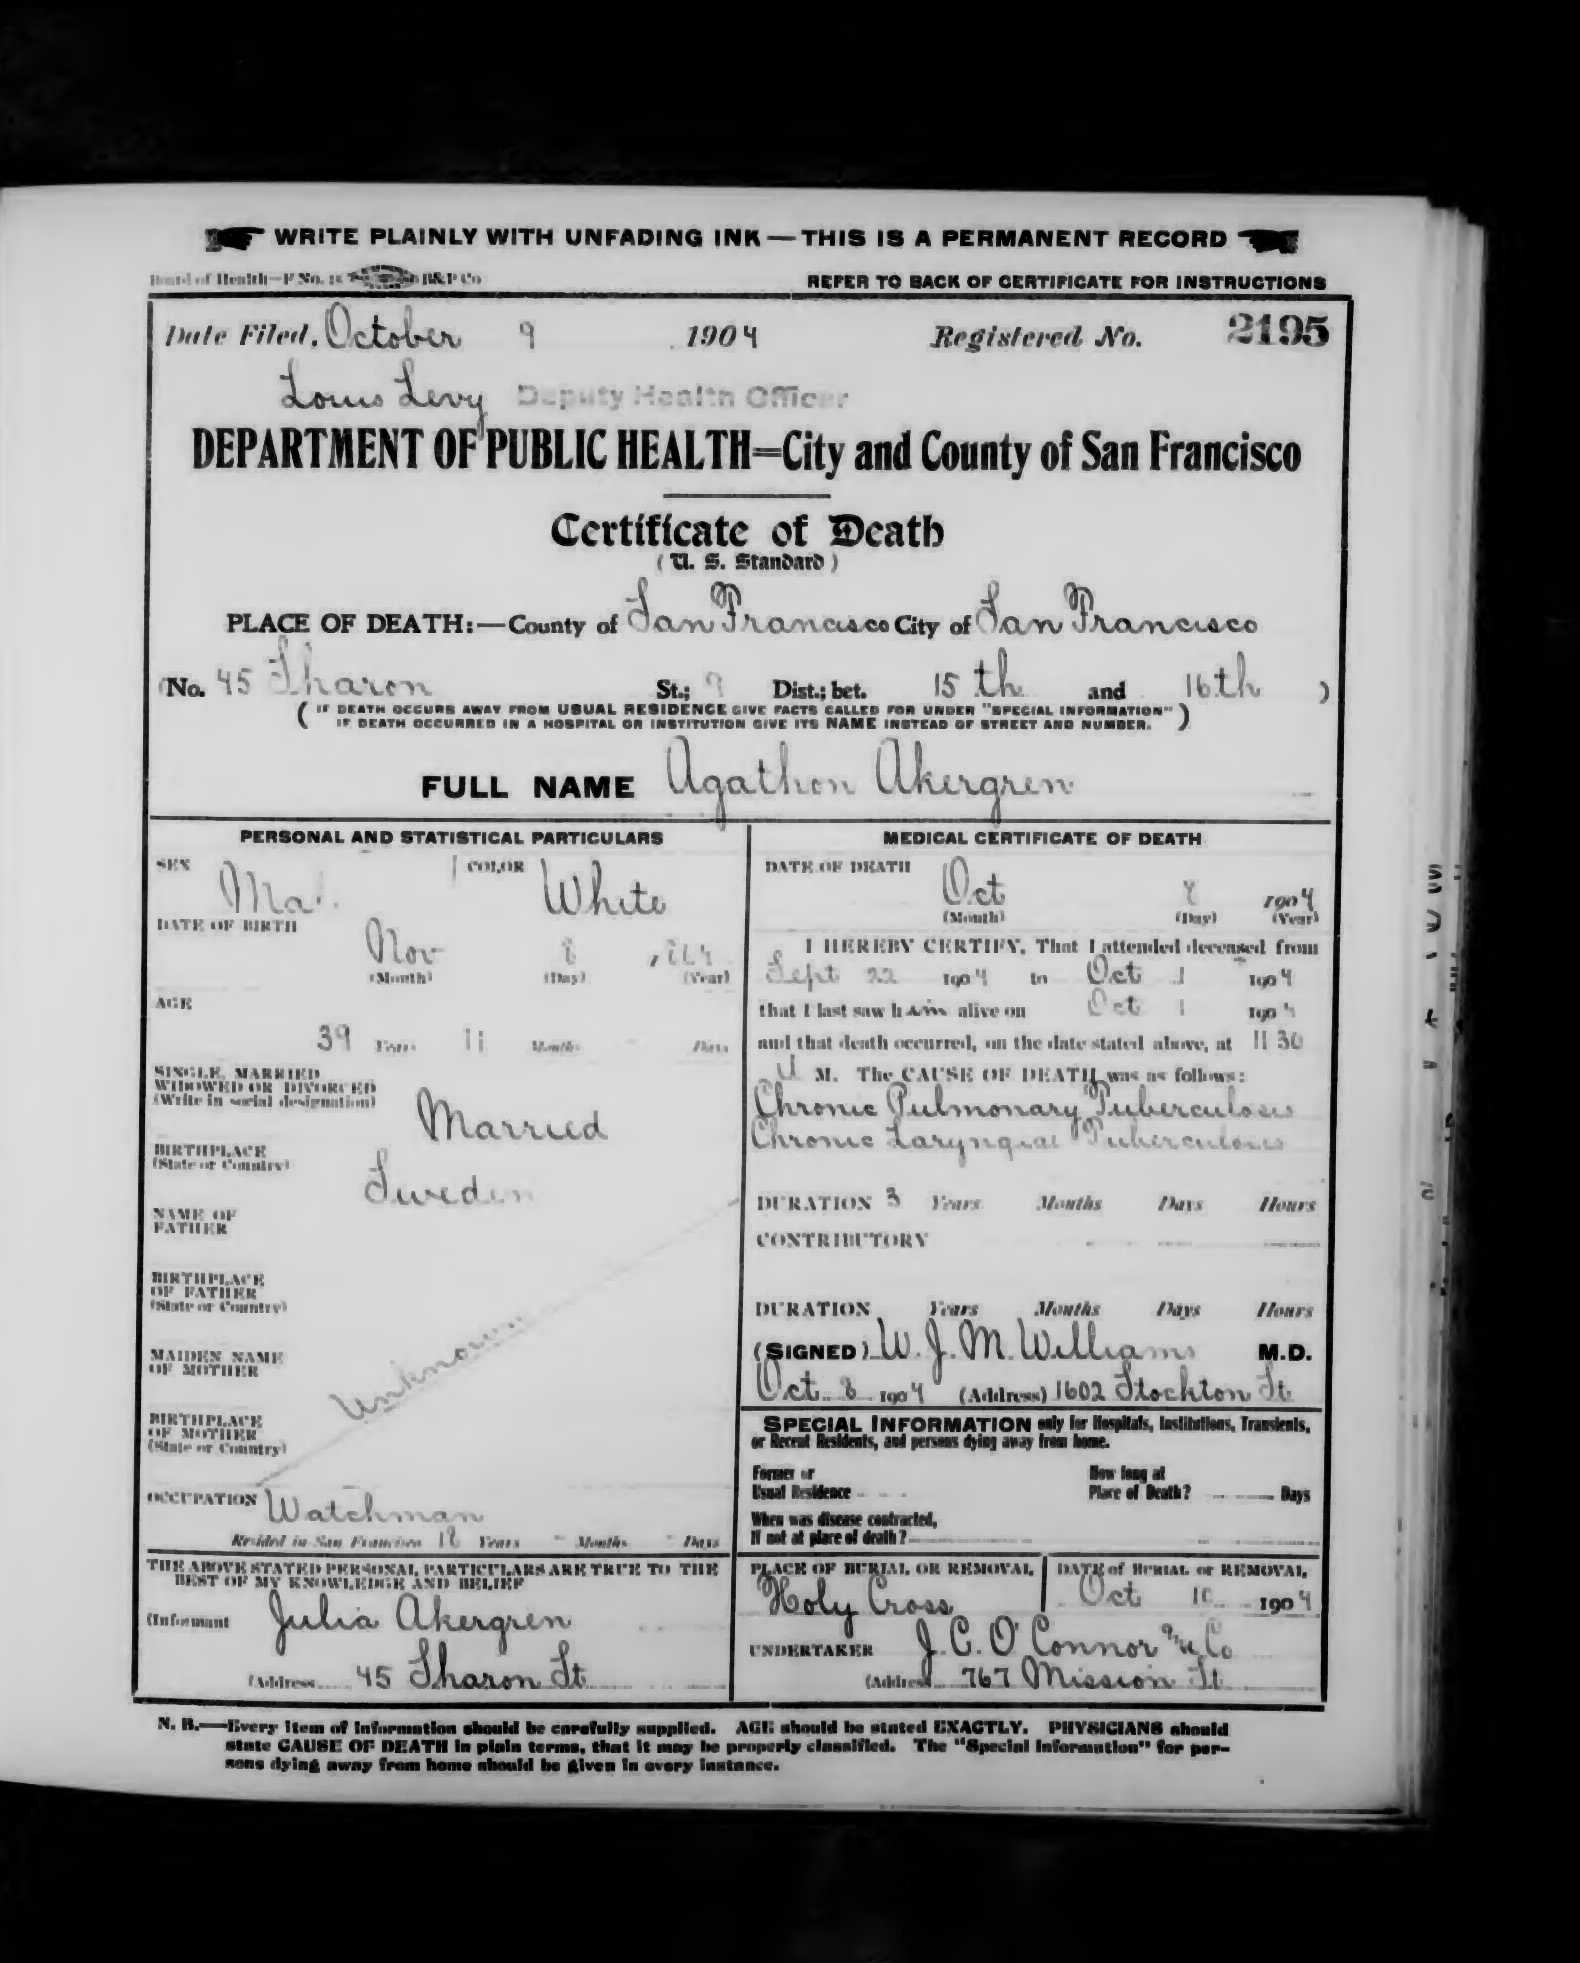 WRITE PLAINLY WITH UNFADING INK—THIS IS A PERMANENT RECORD
Board of Health—F No. B&P Co REFER TO BACK OF CERTIFICATE FOR INSTRUCTIONS
Date Filed, October 9 1904 Registered No. 2195
Louis Levy Deputy Health Officer
DEPARTMENT OF PUBLIC HEALTH=City and County of San Francisco
Certificate of Death
(U. S. Standard)
PLACE OF DEATH:—County of San Francisco City of San Francisco
(No. 45 Sharon St.; 9 Dist.; bet. 15th and 16th )
( IF DEATH OCCURS AWAY FROM USUAL RESIDENCE GIVE FACTS CALLED FOR UNDER "SPECIAL INFORMATION"
IF DEATH OCCURRED IN A HOSPITAL OR INSTITUTION GIVE ITS NAME INSTEAD OF STREET AND NUMBER. )
FULL NAME Agathon Akergren
PERSONAL AND STATISTICAL PARTICULARS
SEX COLOR White
DATE OF BIRTH
Nov 8
(Month) (Day) (Year)
AGE
39 Years 11 Months Days
SINGLE, MARRIED
WIDOWED OR DIVORCED
(Write in social designation)
Married
BIRTHPLACE
(State or Country)
Sweden
NAME OF
FATHER
BIRTHPLACE
OF FATHER
(State or Country)
MAIDEN NAME
OF MOTHER
Unknown
BIRTHPLACE
OF MOTHER
(State or Country)
OCCUPATION Watchman
Resided in San Francisco 18 Years - Months - Days
THE ABOVE STATED PERSONAL PARTICULARS ARE TRUE TO THE
BEST OF MY KNOWLEDGE AND BELIEF
(Informant Julia Akergren
(Address 45 Sharon St
MEDICAL CERTIFICATE OF DEATH
DATE OF DEATH
Oct 8 1904
(Month) (Day) (Year)
I HEREBY CERTIFY, That I attended deceased from
Sept 22 1904 to Oct 1 1904
that I last saw him alive on Oct 1 1904
and that death occurred, on the date stated above, at 11 30
M. The CAUSE OF DEATH was as follows:
Chronic Pulmonary Tuberculosis
Chronic Laryngial Tuberculosis
DURATION 3 Years Months Days Hours
CONTRIBUTORY
DURATION Years Months Days Hours
(SIGNED) W. J. M. Williams M.D.
Oct 8 1904 (Address) 1602 Stockton St
SPECIAL INFORMATION only for Hospitals, Institutions, Transients,
or Recent Residents, and persons dying away from home.
Former or How long at
Usual Residence Place of Death? Days
When was disease contracted,
If not at place of death?
PLACE OF BURIAL OR REMOVAL DATE of BURIAL or REMOVAL
Holy Cross Oct 10 1904
UNDERTAKER J. C. O'Connor & Co
(Address 767 Mission St
N. B.—Every item of information should be carefully supplied. AGE should be stated EXACTLY. PHYSICIANS should
state CAUSE OF DEATH in plain terms, that it may be properly classified. The "Special Information" for per-
sons dying away from home should be given in every instance.